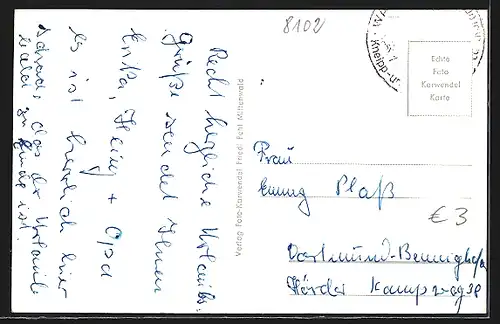 8102
Recht herzliche Urlaubs-
grüße sendet Ihnen
Erika, Heinz + Opa
Es ist herrlich hier
schade, das der Urlaub
bald zu Ende ist.
Verlag Foto-Karwendel Friedl Fehl Mittenwald
Kneipp-u.
Echte
Foto
Karwendel
Karte
Frau
Emmy Plaß
€ 3
Dortmund-Benninghofen
Hörder Kampweg